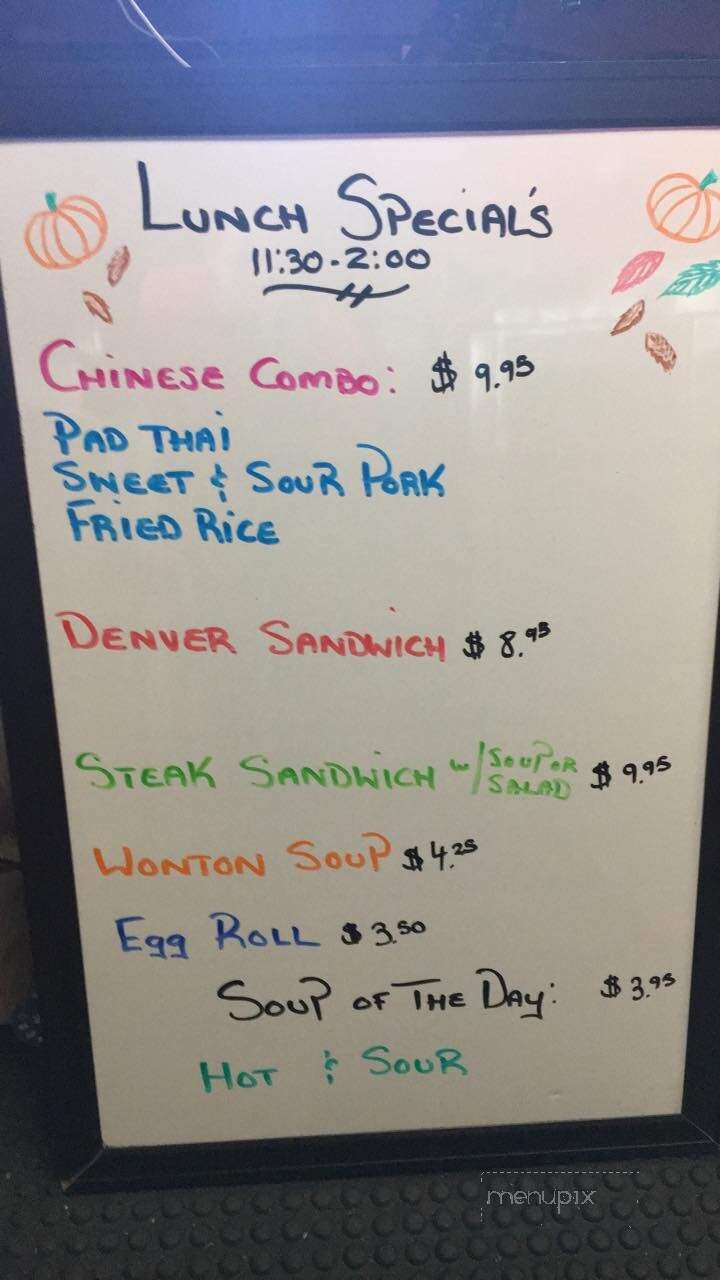 LUNCH SPECIAL'S
11:30-2:00
CHINESE COMBO: $ 9.95
PAD THAI
SWEET & SOUR PORK
FRIED RICE
DENVER SANDWICH $ 8.95
STEAK SANDWICH w/ SOUP OR SALAD $ 9.95
WONTON SOUP $ 4.25
Egg ROLL $ 3.50
SOUP OF THE DAY: $ 3.95
HOT & SOUR
menupix